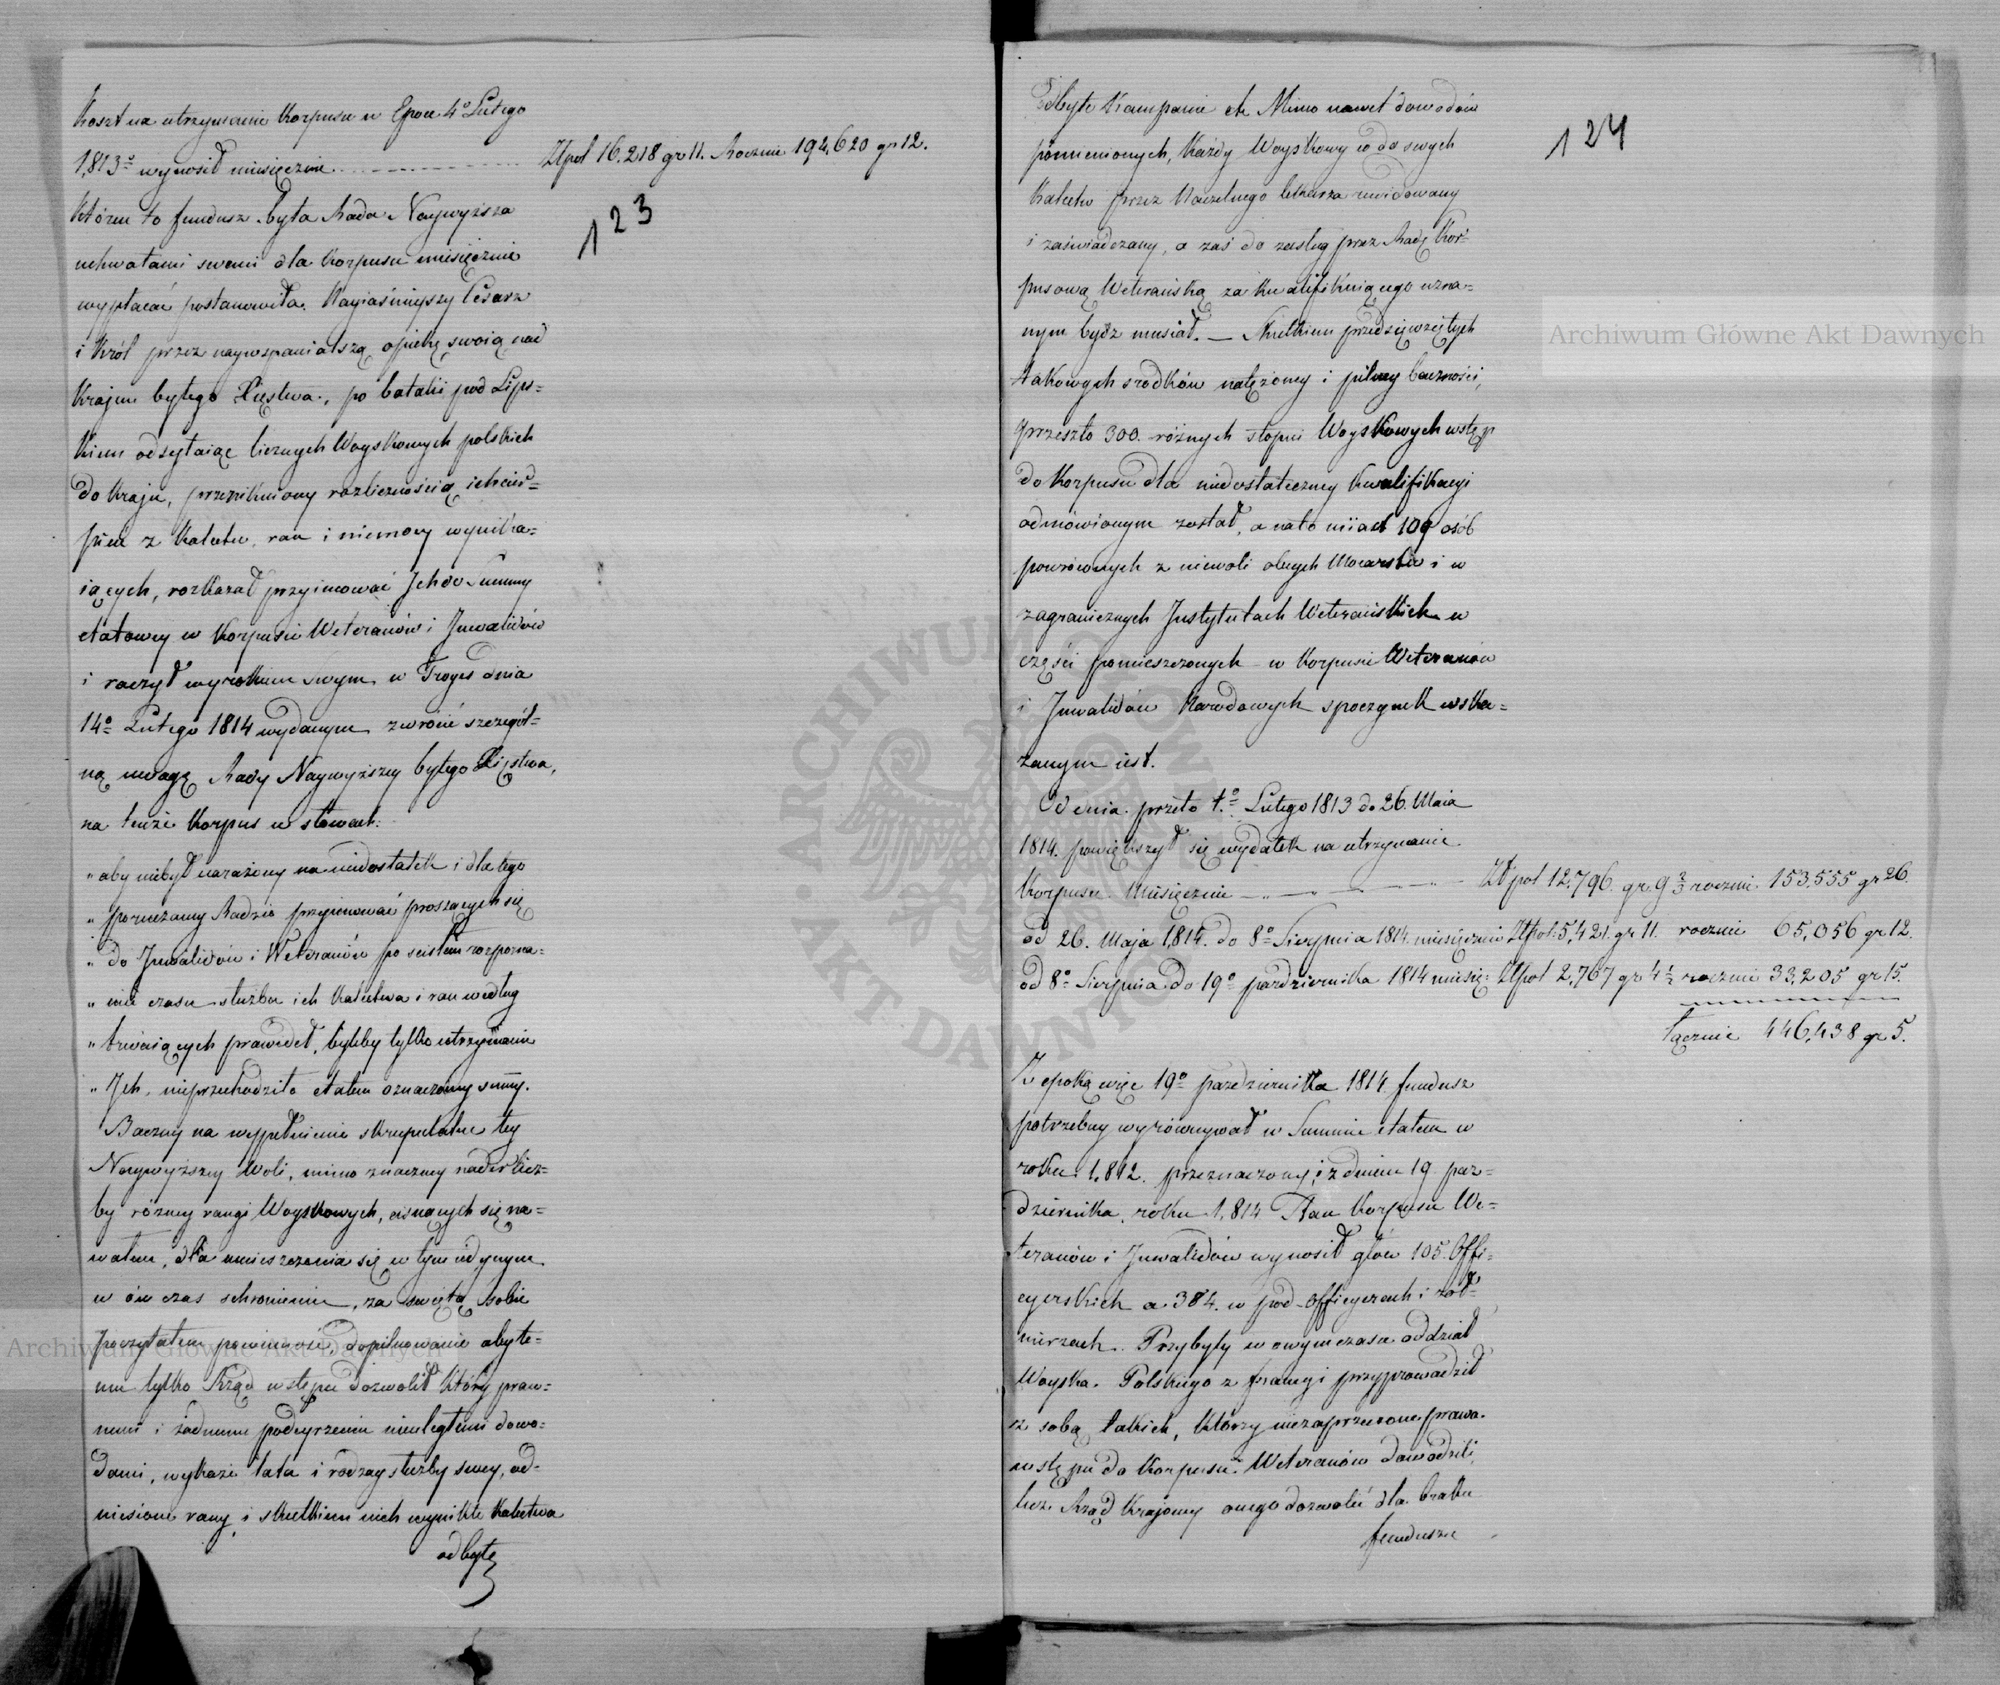 Koszt na utrzymanie Korpusu w Epoce 4º Lutego
1,813º wynosił miesięcznie Złpol 16,218 gr 11. Rocznie 194,620 gr 12.
123
Któren to fundusz była Rada Naywyższa
uchwałami swemi dla Korpusu miesięcznie
wypłacać postanowiła. Nayiaśnieyszy Cesarz
i Król przez naywspanialszą opiekę swoią nad
Kraiem byłego Xięstwa, po batalii pod Lips=
kiem odsyłaiąc licznych Woyskowych polskich
do Kraju, przenikniony rozlicznością ich cier=
pień z Kalectw, ran i niemocy wynika=
iących, rozkazał przyimować Jch do Summy
etatowey w Korpusie Weteranów i Jnwalidów
i raczył wyrokiem swym w Troyes dnia
14º Lutego 1814 wydanym zwrócić szczegól=
ną uwagę Rady Naywyższey byłego Xięstwa,
na tenże Korpus w słowach:
„ aby niebył narażony na niedostatek i dla tego
„ poruczamy Radzie przyimować proszących się
„ do Jnwalidów i Weteranów po scisłem rozpozna=
„ niu czasu służby ich Kalectwa i ran według
„ trwaiących prawideł, byleby tylko utrzymanie
„ Jch, nieprzechodziło etatem oznaczoney summy.
Baczny na wypełnienie skrupulatne tey
Naywyższey Woli, mimo znaczney nader licz=
by różney rangi Woyskowych, cisnących się na=
wałem, dla umieszczenia się w tym iedynym
w ów czas schronieniu, za świętą sobie
poczytałem powinność, dopilnowanie aby te=
mu tylko Rząd wstępu dozwolił który praw=
nemi i żadnemu podeyrzeniu nieuległemi dowo=
dami, wykaże lata i rodzay służby swey, od=
niesione rany, i skutkiem nich wynikłe Kalectwa
odbyte
124
Odbyte Kampanie etc Mimo nawet dowodów
pomienionych, Każdy Woyskowy co do swych
Kalectw przez Naczelnego lekarza rewidowany
i zaświadczany, a zaś do zasług przez Radę Kor=
pusową Weterańską za kwalifikuiącego uzna=
nym bydź musiał. — Skutkiem przedsięwziętych
takowych srodków natężoney i pilney baczności,
przeszło 300. różnych stopni Woyskowych wstęp
do Korpusu dla niedostateczney Kwalifikacyi
odmówionym został, a na to miast 109 osób
powróconych z niewoli obcych Mocarstw i w
zagranicznych Jnstytutach Weterańskich w
części pomieszczonych w Korpusie Weteranów
i Jnwalidów Narodowych spoczynek wska=
zanym iest.
Od dnia przeto 4.º Lutego 1813 do 26. Maia
1814. powiększył się wydatek na utrzymanie
Korpusu miesięcznie Złpol 12,796. gr 9 2/3 rocznie 153,555 gr 26.
od 26. Maja 1,814. do 8º Sierpnia 1814. miesięcznie Złpol: 5,421. gr 11. rocznie 65,056 gr 12.
od 8º Sierpnia do 19º października 1814 miesię: Złpol 2,767 gr 4 1/2 rocznie 33,205 gr 15.
łącznie 446,438 gr 5.
Z epoką więc 19º października 1814 fundusz
potrzebny wyrównywał w Summie etatem w
roku 1,812. przeznaczoney, i z dniem 19 paz=
dziernika roku 1,814 Stan Korpusu We=
teranów i Jnwalidów wynosił głów 105. Offi=
cyerskich a 384. w pod-officyerach i żoł=
nierzach. Przybyły w owym czasie oddział
Woyska Polskiego z francyi przyprowadził
z sobą takich, którzy niezaprzeczone prawa
wstępu do Korpusu Weteranów dowodzili,
lecz Rząd Kraiowy onego dozwolić dla braku
funduszu
Archiwum Główne Akt Dawnych
Archiwum Główne Akt Dawnych